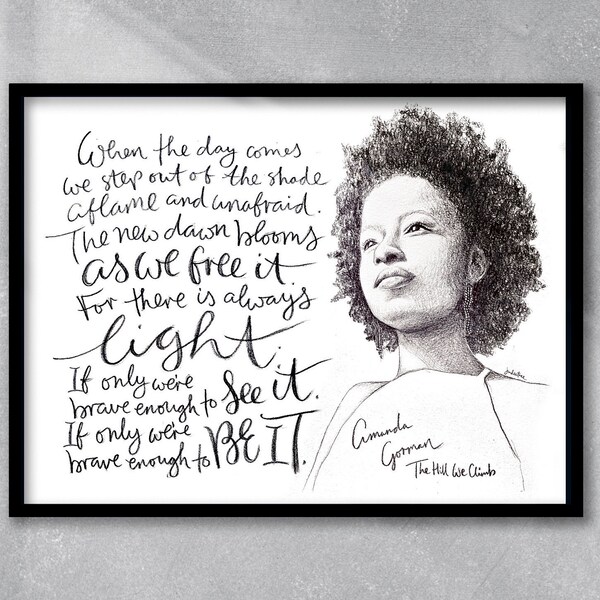 When the day comes
we step out of the shade
aflame and unafraid.
The new dawn blooms
as we free it.
For there is always
light.
If only we're
brave enough to see it.
If only we're
brave enough to BE IT.
Amanda
Gorman
The Hill We Climb